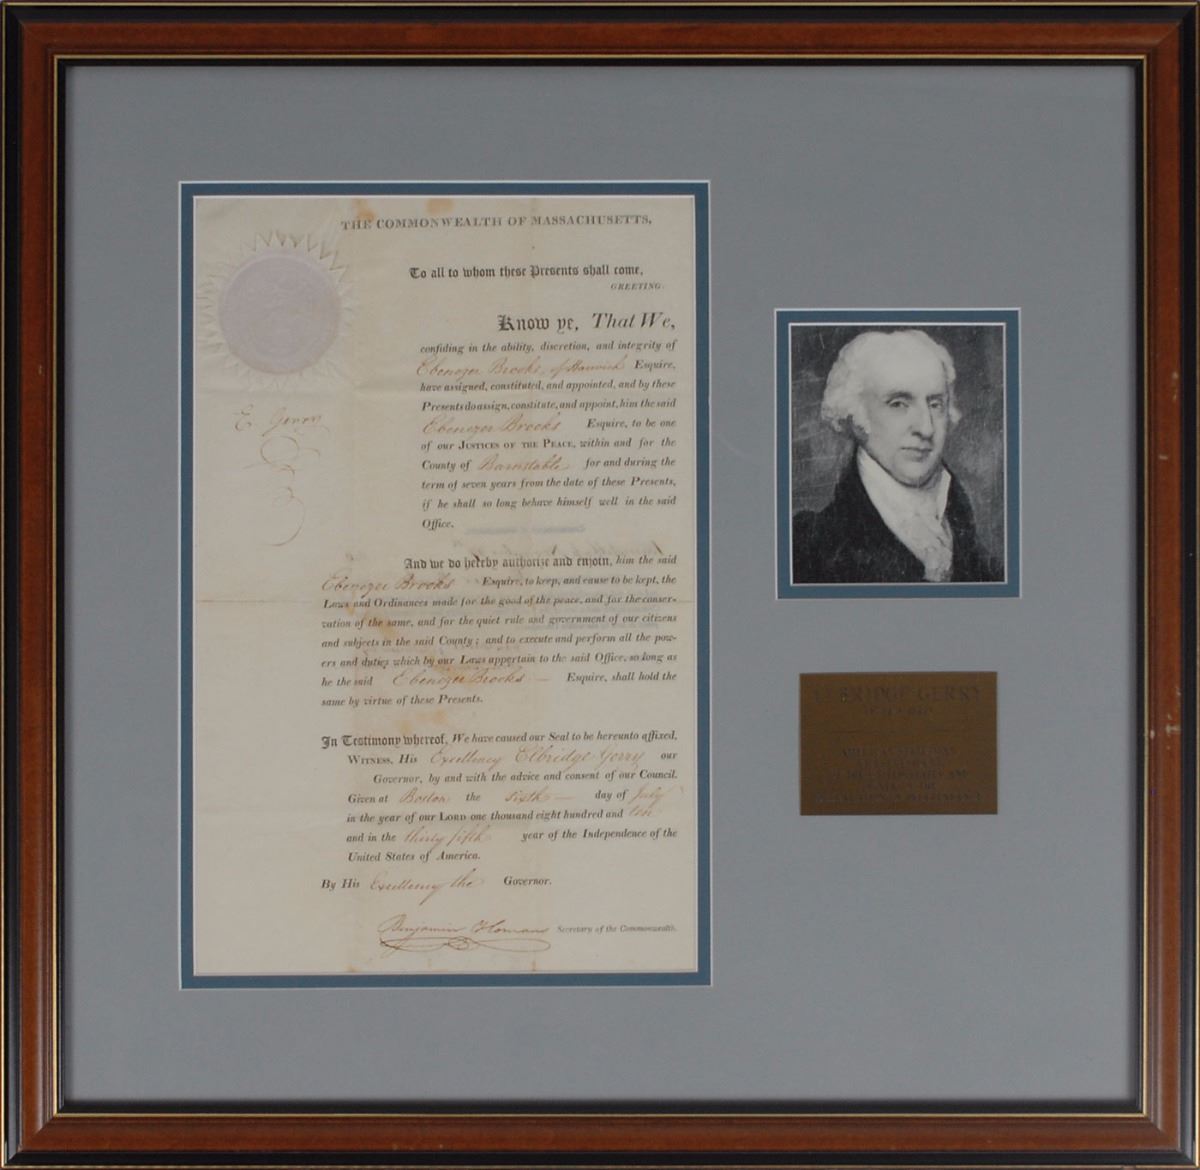 THE COMMONWEALTH OF MASSACHUSETTS,
To all to whom these Presents shall come,
GREETING:
Know ye, That We,
confiding in the ability, discretion, and integrity of
Ebenezer Brooks, of Harwich Esquire,
have assigned, constituted, and appointed, and by these
Presents do assign, constitute, and appoint, him the said
Ebenezer Brooks Esquire, to be one
of our JUSTICES OF THE PEACE, within and for the
County of Barnstable for and during the
term of seven years from the date of these Presents,
if he shall so long behave himself well in the said
Office.
E. Gerry
And we do hereby authorize and enjoin, him the said
Ebenezer Brooks Esquire, to keep, and cause to be kept, the
Laws and Ordinances made for the good of the peace, and for the conser-
vation of the same, and for the quiet rule and government of our citizens
and subjects in the said County; and to execute and perform all the pow-
ers and duties which by our Laws appertain to the said Office, so long as
he the said Ebenezer Brooks — Esquire, shall hold the
same by virtue of these Presents.
In Testimony whereof, We have caused our Seal to be hereunto affixed,
WITNESS, His Excellency Elbridge Gerry our
Governor, by and with the advice and consent of our Council.
Given at Boston the sixth — day of July
in the year of our LORD one thousand eight hundred and ten
and in the thirty fifth year of the Independence of the
United States of America.
By His Excellency the Governor.
Benjamin Homans Secretary of the Commonwealth.
ELBRIDGE GERRY
AMERICAN STATESMAN
DECLARATION OF INDEPENDENCE